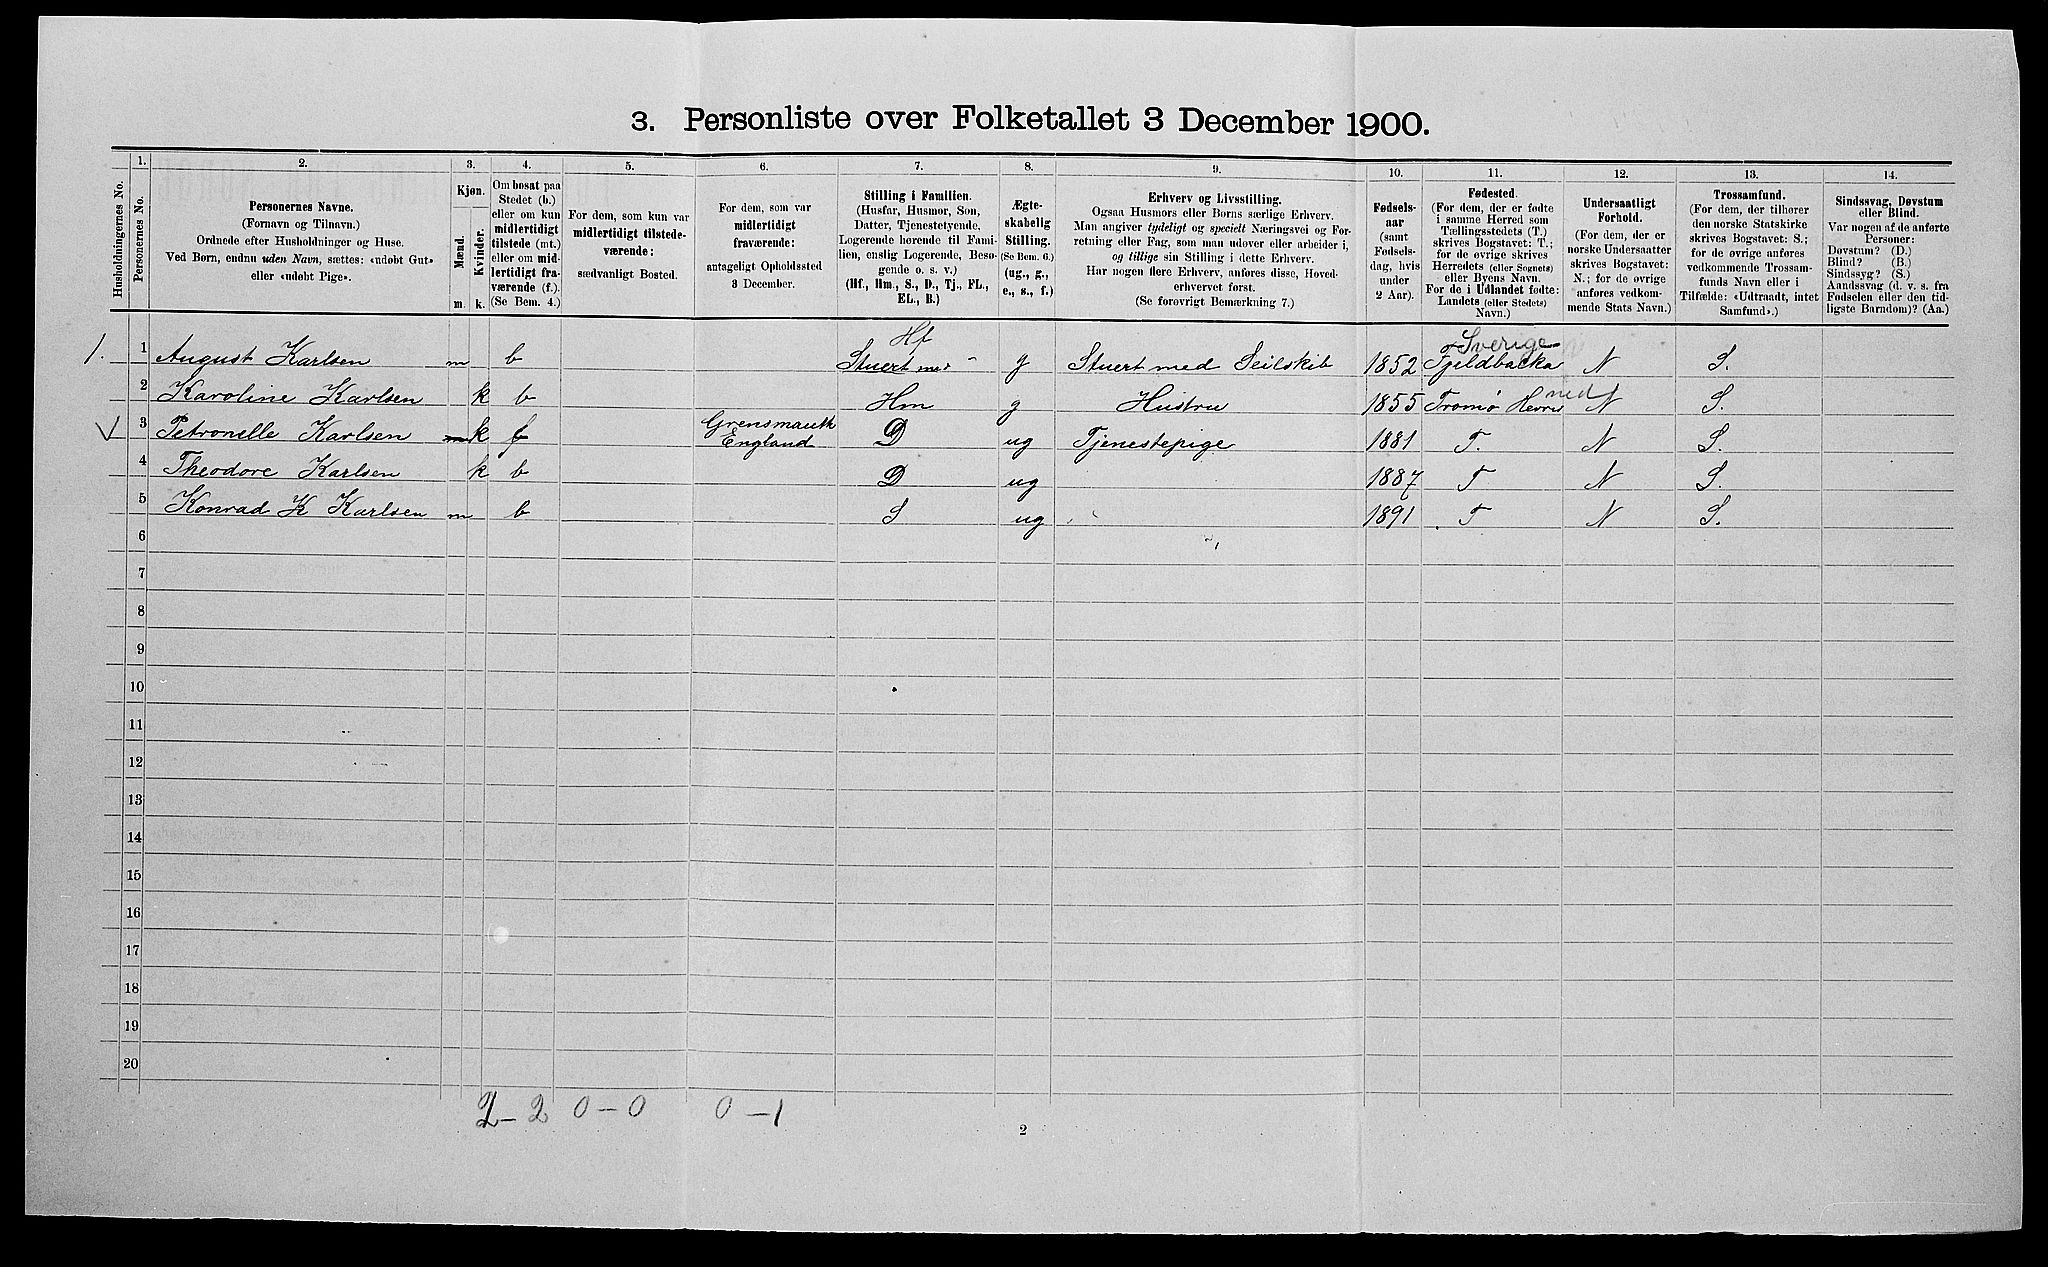 3. Personliste over Folketallet 3 December 1900.
Husholdningernes No.
1.
Personernes No.
2.
Personernes Navne.
(Fornavn og Tilnavn.)
Ordnede efter Husholdninger og Huse.
Ved Børn, endnu uden Navn, sættes: «udøbt Gut»
eller «udøbt Pige».
3.
Kjøn.
Mænd.
Kvinder.
m. k.
4.
Om bosat paa
Stedet (b.)
eller om kun
midlertidigt
tilstede (mt.)
eller om mid-
lertidigt fra-
værende (f.).
(Se Bem. 4.)
5.
For dem, som kun var
midlertidigt tilstede-
værende:
sædvanligt Bosted.
6.
For dem, som var
midlertidigt
fraværende:
antageligt Opholdssted
3 December.
7.
Stilling i Familien.
(Husfar, Husmor, Søn,
Datter, Tjenestetyende,
Logerende hørende til Fami-
lien, enslig Logerende, Besø-
gende o. s. v.)
(Hf., Hm., S., D., Tj., FL.,
EL., B.)
8.
Ægte-
skabelig
Stilling.
(Se Bem. 6.)
(ug., g.,
e., s., f.)
9.
Erhverv og Livsstilling.
Ogsaa Husmors eller Børns særlige Erhverv.
Man angiver tydeligt og specielt Næringsvei og For-
retning eller Fag, som man udøver eller arbeider i,
og tillige sin Stilling i dette Erhverv.
Har nogen flere Erhverv, anføres disse, Hoved-
erhvervet først.
(Se forøvrigt Bemærkning 7.)
10.
Fødsels-
aar
(samt
Fødsels-
dag, hvis
under
2 Aar).
11.
Fødested.
(For dem, der er fødte
i samme Herred som
Tællingsstedets (T.)
skrives Bogstavet: T.;
for de øvrige skrives
Herredets (eller Sognets)
eller Byens Navn.
For de i Udlandet fødte:
Landets (eller Stedets)
Navn.)
12.
Undersaatligt
Forhold.
(For dem, der er
norske Undersaatter
skrives Bogstavet:
N.; for de øvrige
anføres vedkom-
mende Stats Navn.)
13.
Trossamfund.
(For dem, der tilhører
den norske Statskirke
skrives Bogstavet: S.;
for de øvrige anføres
vedkommende Trossam-
funds Navn eller i
Tilfælde: «Udtraadt, intet
Samfund».)
14.
Sindssvag, Døvstum
eller Blind.
Var nogen af de anførte
Personer:
Døvstum? (D.)
Blind? (B.)
Sindssyg? (S.)
Aandssvag (d. v. s. fra
Fødselen eller den tid-
ligste Barndom)? (Aa.)
Hf Sverige
1. 1 August Karlsen m b Stuert g Stuert med Seilskib 1852 Fjeldbacka N S.
2 Karoline Karlsen k b Hm g Hustru 1855 Tromø Herred N S.
Grensmauth
3 Petronelle Karlsen k f England D ug Tjenestepige 1881 T. N S.
4 Theodore Karlsen k b D ug 1887 T N S.
5 Konrad K Karlsen m b S ug 1891 T N S.
6
7
8
9
10
11
12
13
14
15
16
17
18
19
20
2 – 2 0 – 0 0 – 1
2